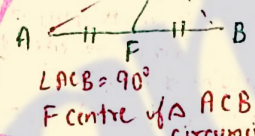 A F B
∠ACB = 90°
F centre of Δ ACB